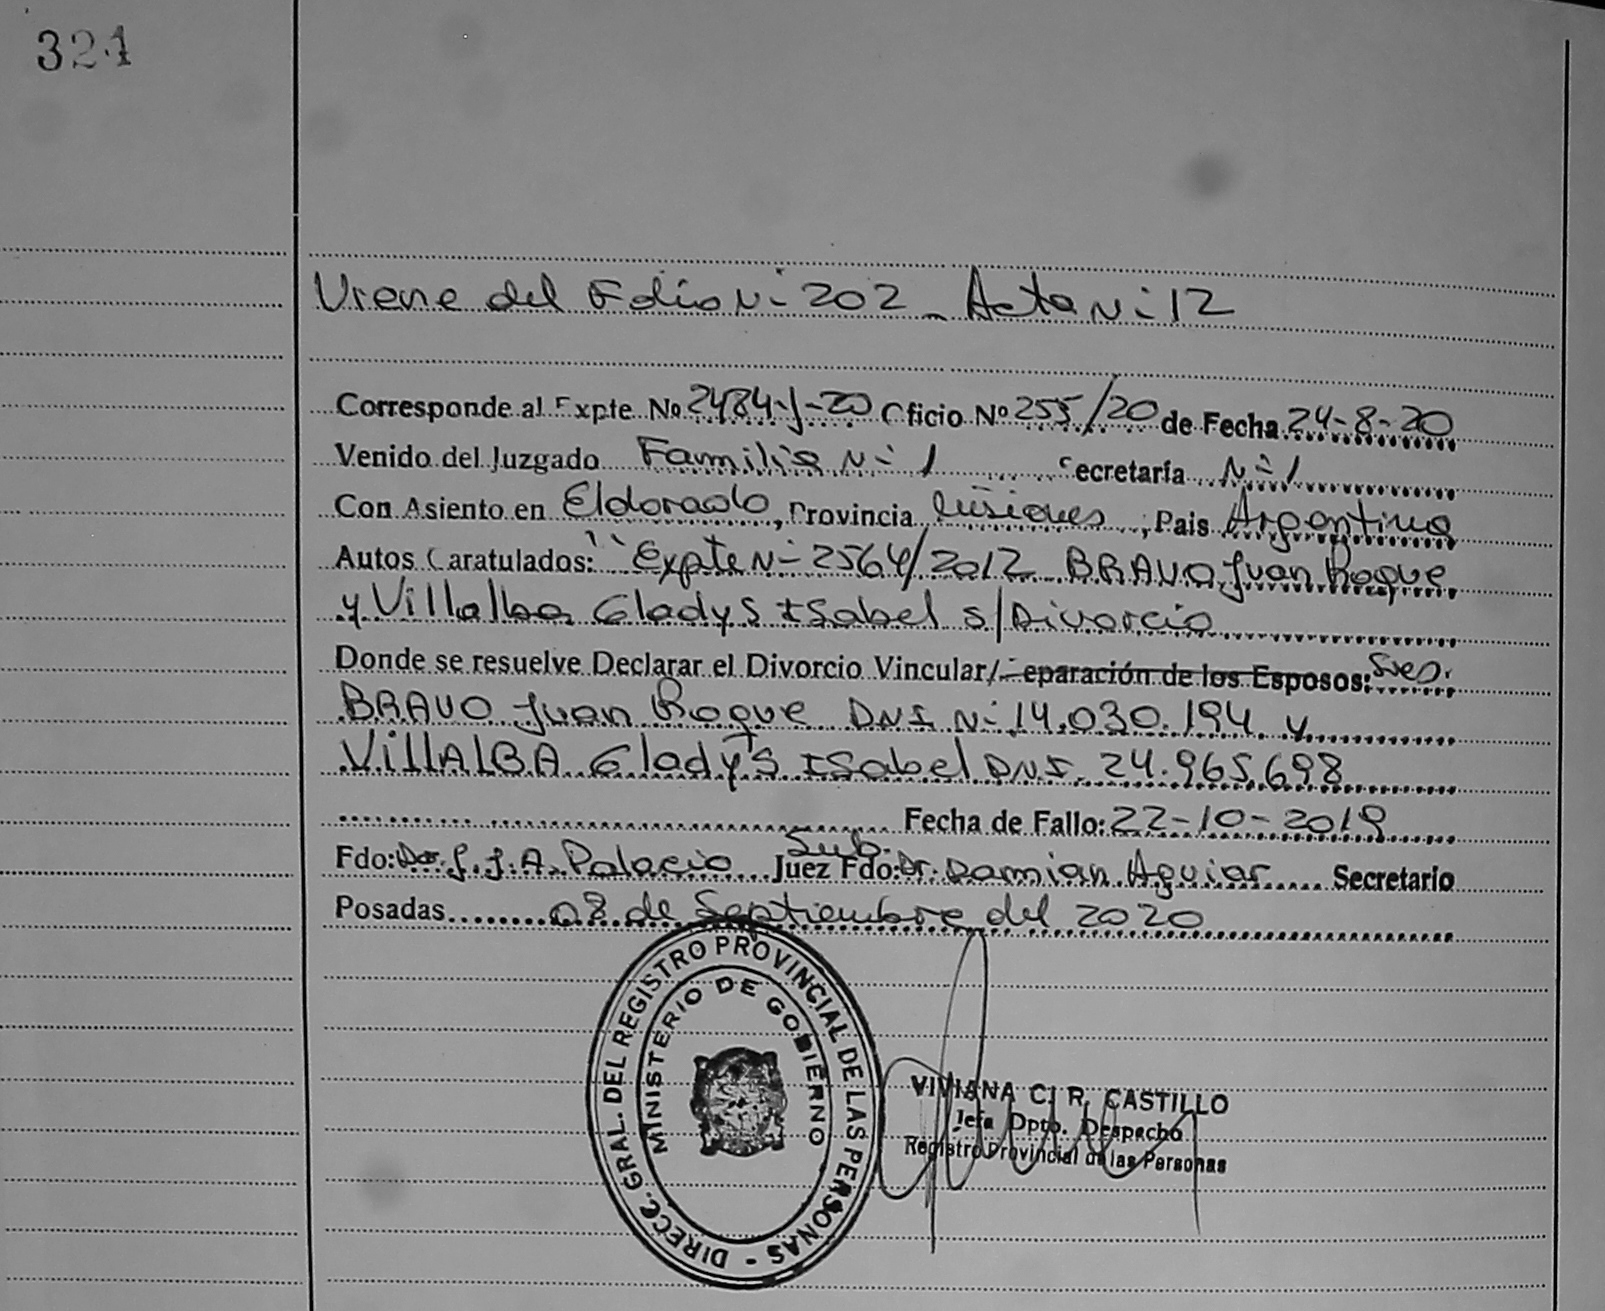 324
Viene del Folio N- 202 - Acta N- 12
Corresponde al Expte. No 2484-J-20 Oficio No 255/20 de Fecha 24-8-20
Venido del Juzgado Familia N- 1 Secretaría N- 1
Con Asiento en Eldorado, Provincia Misiones, Pais Argentina
Autos Caratulados: "Expte N- 2564/2012 BRAVO Juan Roque
y Villalba Gladys Isabel s/Divorcio
Donde se resuelve Declarar el Divorcio Vincular/Separación de los Esposos: Sres.
BRAVO Juan Roque DNI N- 14.030.194 y
VillALBA Gladys Isabel DNI. 24.965.698
Fecha de Fallo: 22-10-2019
Fdo: J. J. A. Palacio Juez Fdo: Sub. Dr. Damian Aguiar Secretario
Posadas 08 de Septiembre del 2020
DIRECC. GRAL. DEL REGISTRO PROVINCIAL DE LAS PERSONAS -
MINISTERIO DE GOBIERNO
VIVIANA C. R. CASTILLO
Jefa Dpto. Despacho
Registro Provincial de las Personas